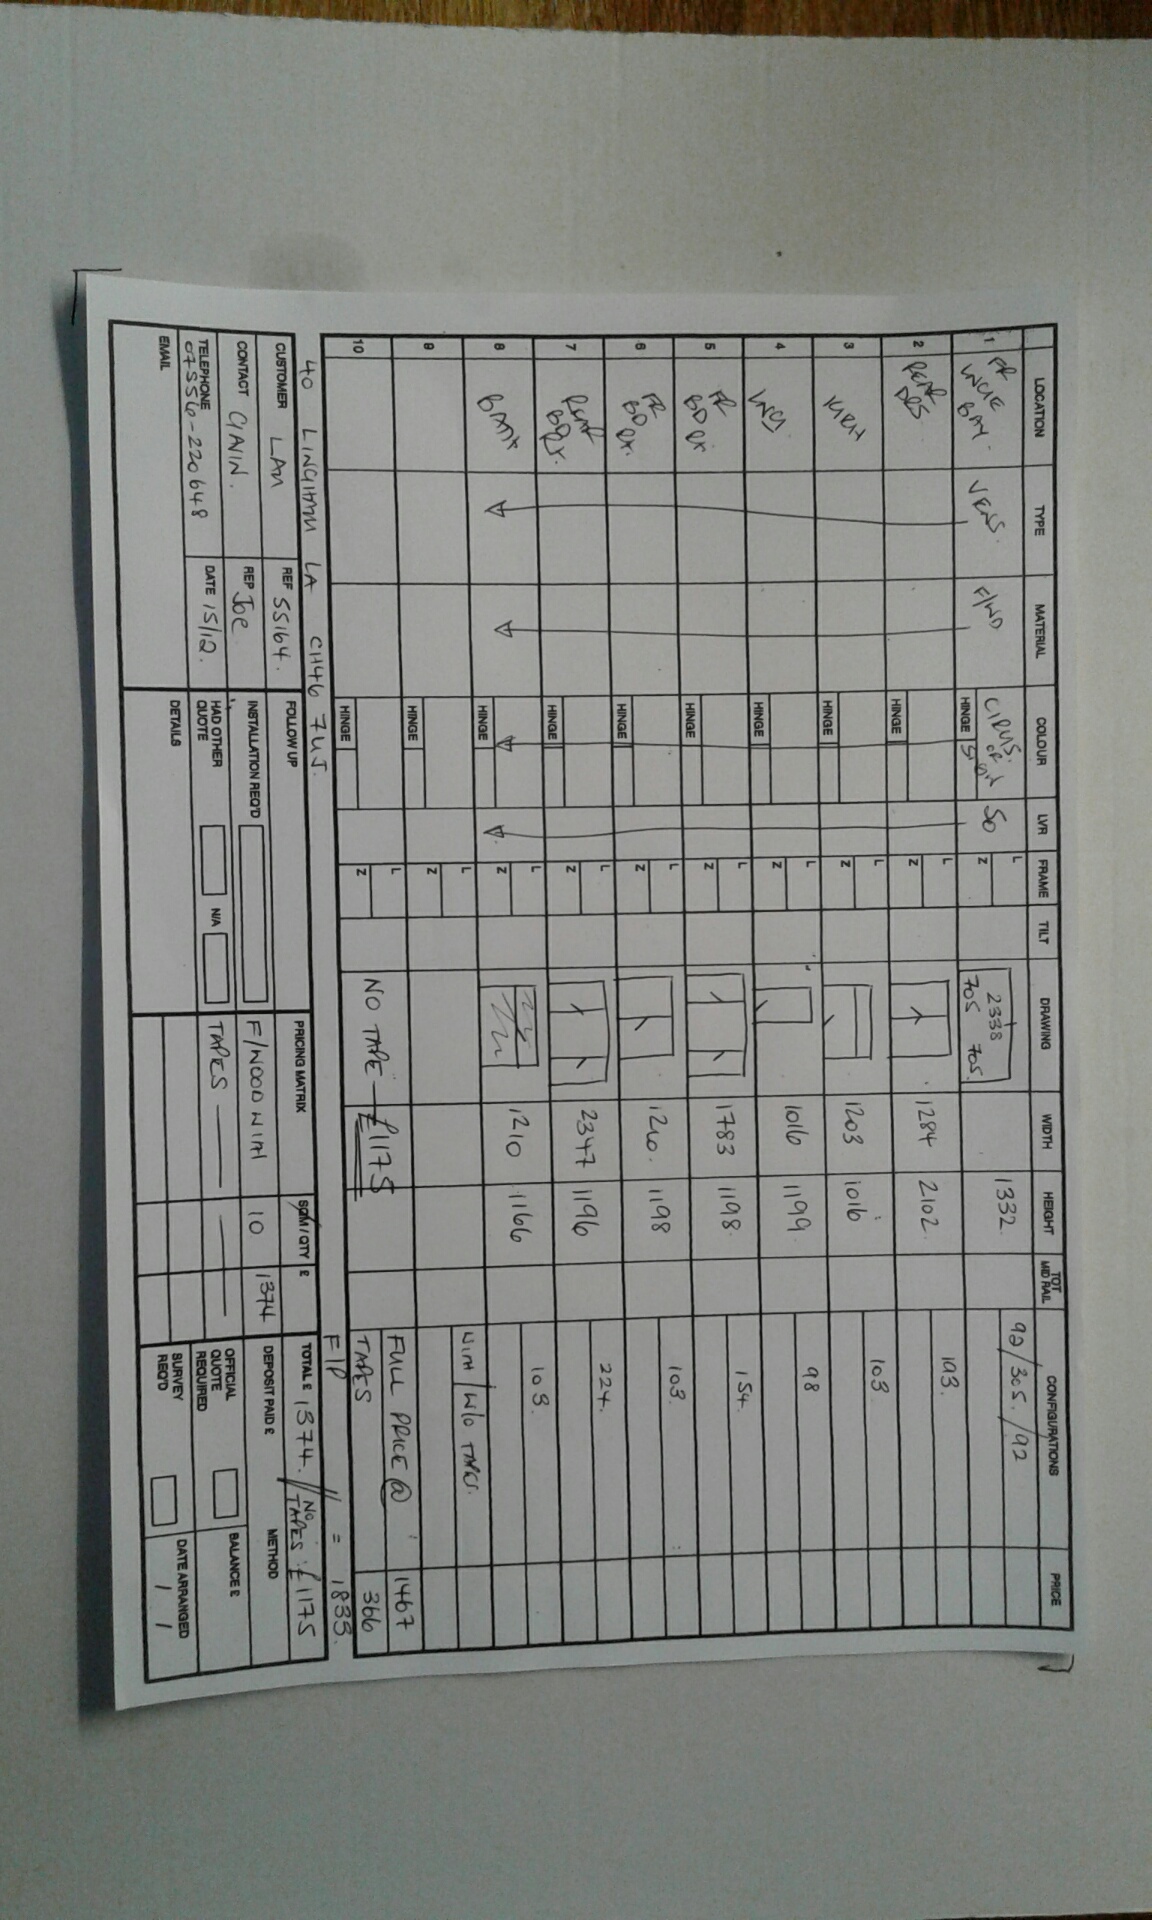 LOCATION TYPE MATERIAL COLOUR LVR FRAME TILT DRAWING WIDTH HEIGHT TOT MID RAIL CONFIGURATIONS PRICE
1 FR LNGE BAY. VENS. F/WD HINGE 50 L Z 2338 705 705. 1332 92/305./92
2 REAR DRS HINGE L Z 1284 2102 193.
3 KITCH HINGE L Z 1203 1016 103
4 HINGE L Z 1016 1199 98
5 FR BD RX HINGE L Z 1783 1198. 154.
6 FR BD RX. HINGE L Z 1260. 1198 103.
7 REAR BD RX. HINGE L Z 2347 1196 224.
8 BATH HINGE L Z 1210 1166 103.
9 HINGE L Z WITH / W/O TAPES.
10 HINGE L Z NO TAPE - £1175 FULL PRICE @ 1467
TAPES 366
40 LINGHAM LA CH46 7UJ. F/P // = 1833.
CUSTOMER LAM REF 55164. FOLLOW UP PRICING MATRIX SQM / QTY £ TOTAL £ 1374. // NO TAPES: £1175
CONTACT GAVIN. REP Joe INSTALLATION REQ'D F/WOOD WITH 10 1374 DEPOSIT PAID £ METHOD
TELEPHONE 07556-220648 DATE 15/12. HAD OTHER QUOTE N/A TAPES OFFICIAL QUOTE REQUIRED BALANCE £
EMAIL DETAILS SURVEY REQ'D DATE ARRANGED / /